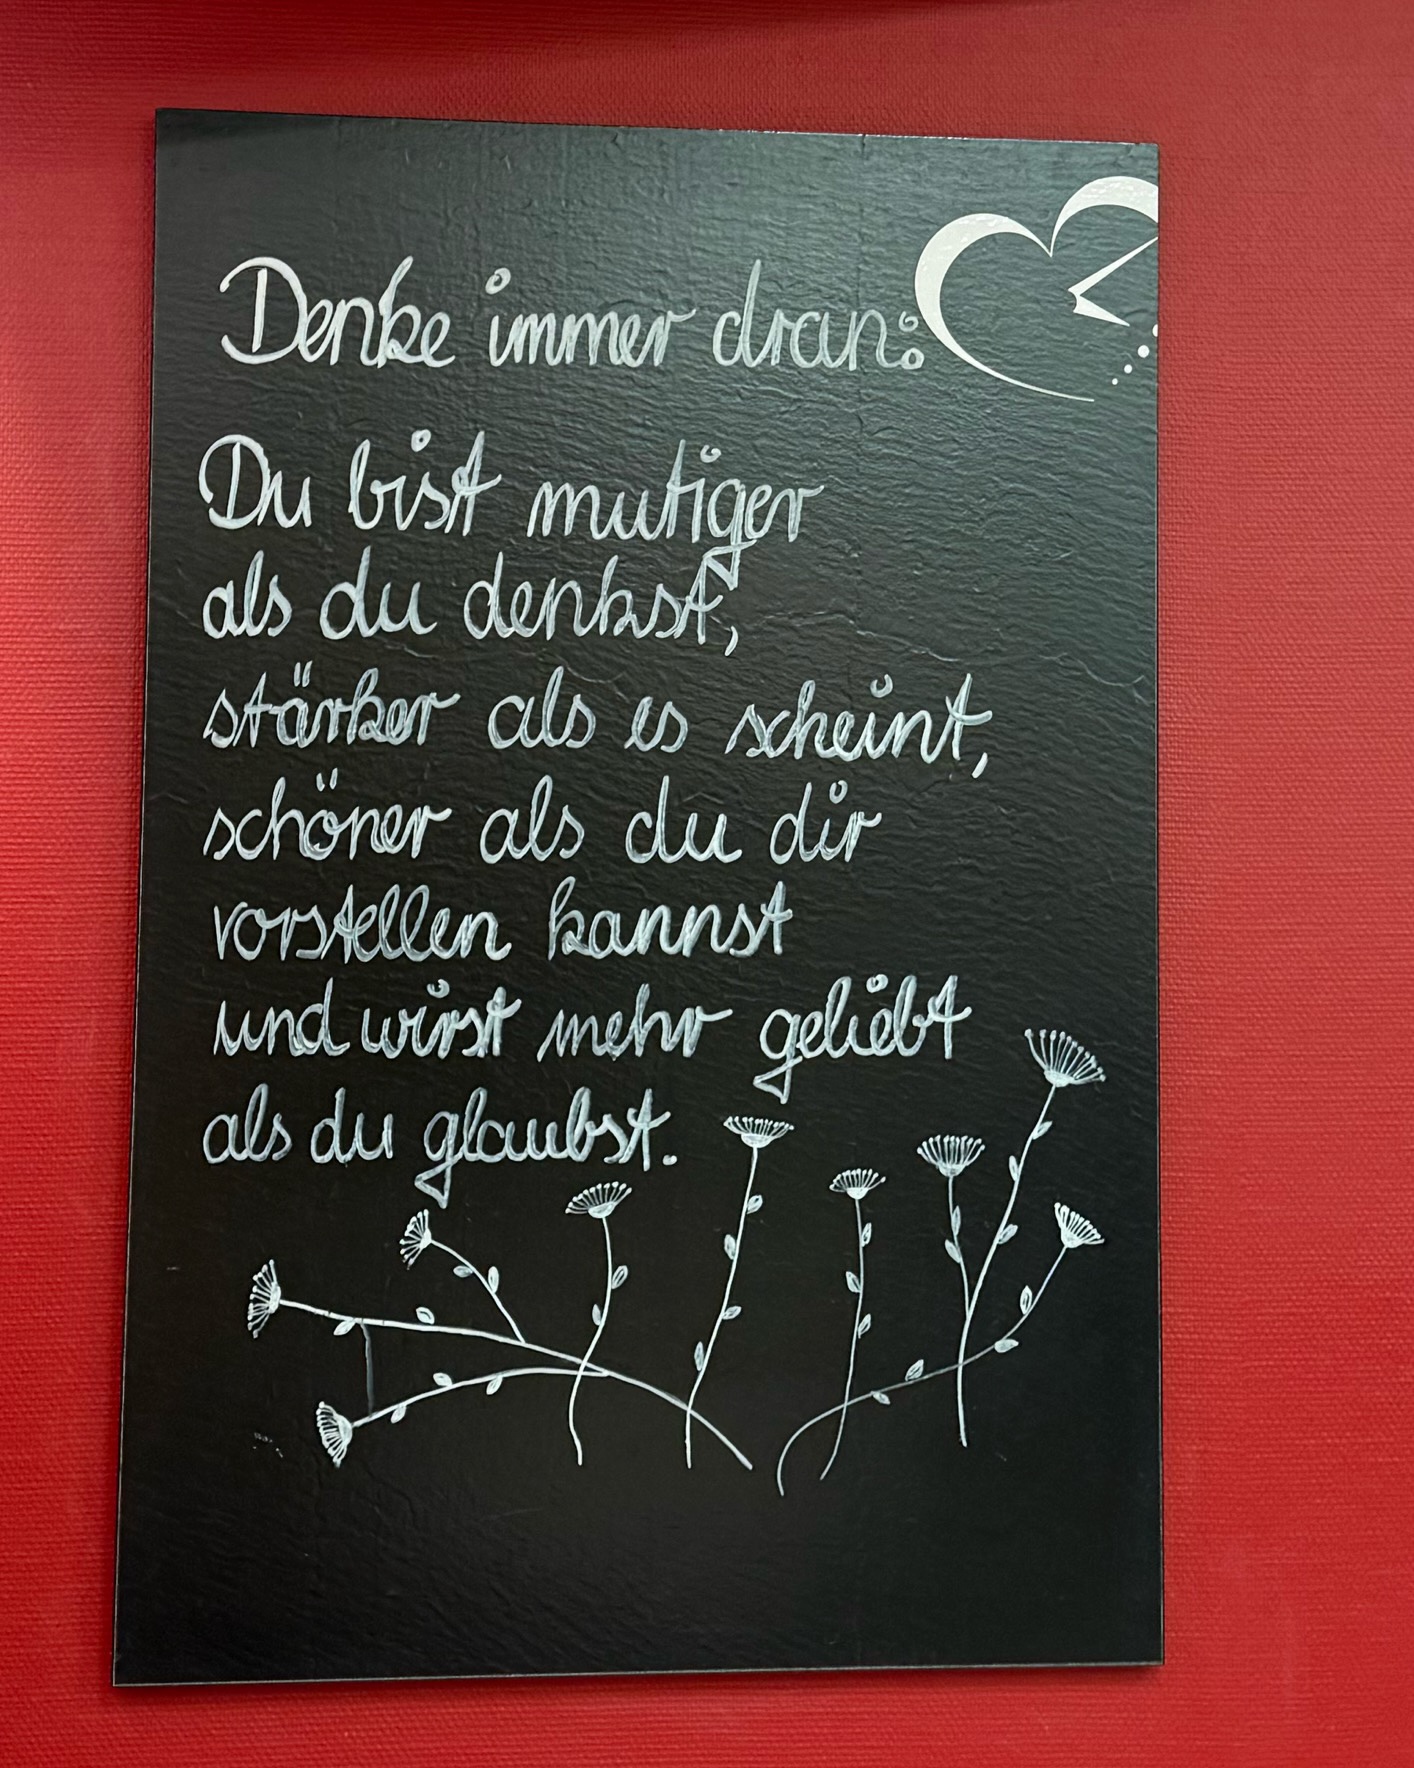 Denke immer dran:
Du bist mutiger
als du denkst,
stärker als es scheint,
schöner als du dir
vorstellen kannst
und wirst mehr geliebt
als du glaubst.